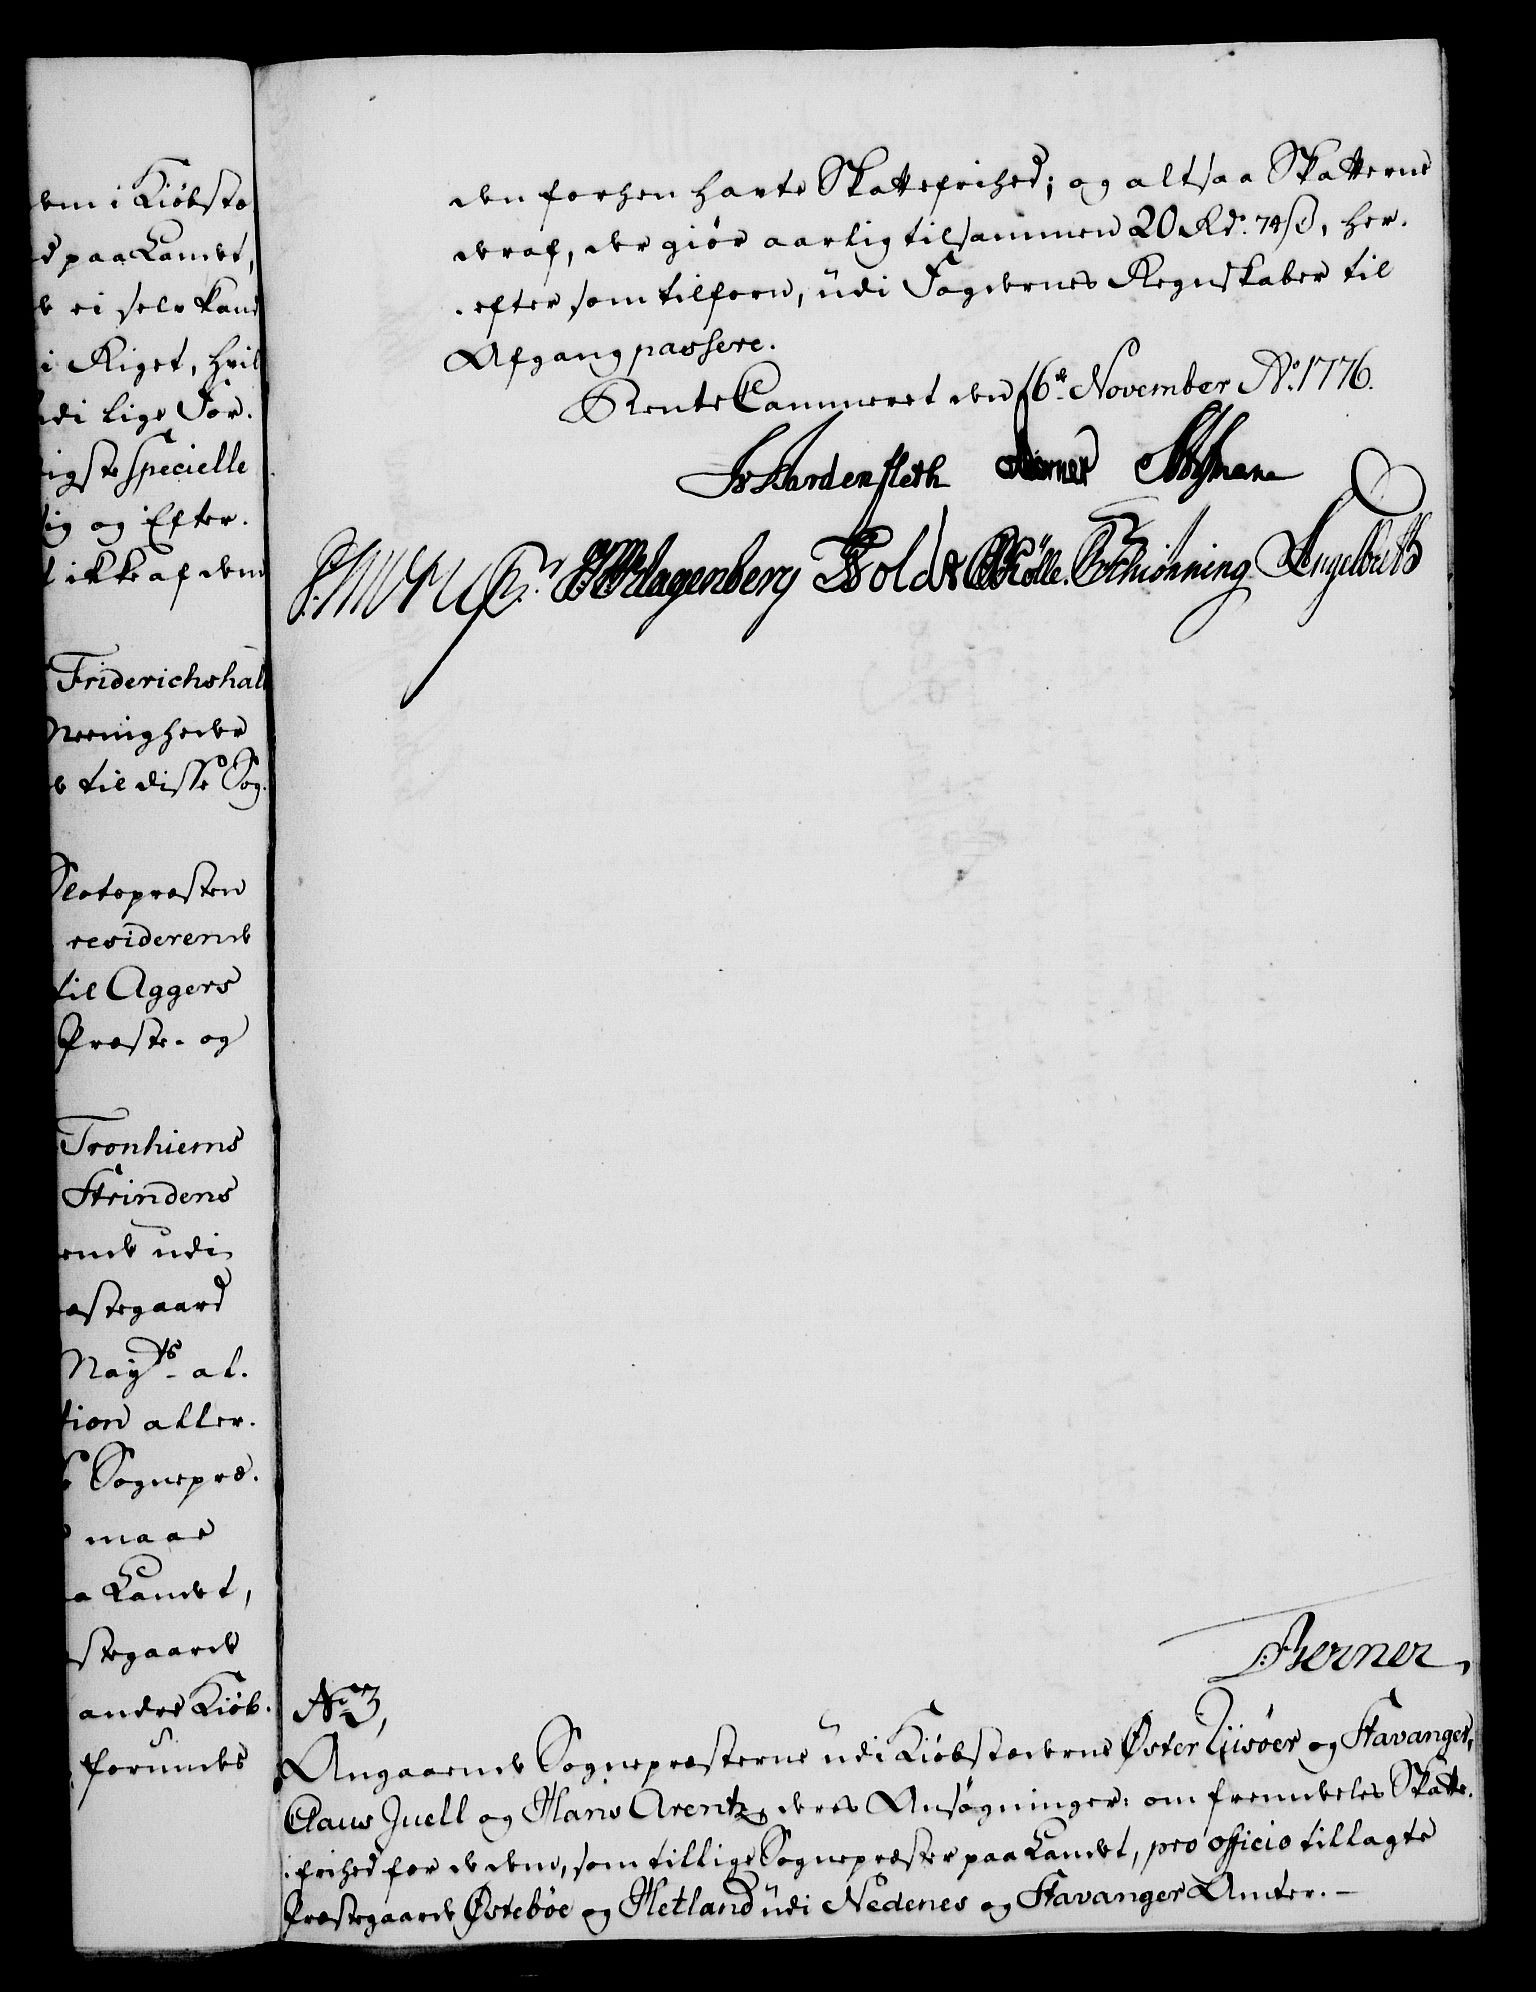 em i Kiøbstæ
d paa Landet,
e ei selv kand
i Riget, hvil
udi lige For-
igste specielle
ig og Efter-
t ikke af dem
Friderichshald
Meenigheder
e til disse Sog-
Slotspræsten
residerende
til Aggers
Præste- og
Tronhiems
Strindens
ende udi
æstegaard
Mayts al-
tion aller-
Sognepræ-
maae
a Landet,
stegaarde
andre Kiøb-
forundes
den forhen havte Skattefrihed; og altsaa Skatterne
deraf, der giør aarlig tilsammen 20 Rdr. 74 ß, her-
-efter som tilforn, udi Fogdernes Regnskaber til
Afgang passere.
RenteCammeret den 16de November Ao. 1776.
JvHardenfleth Berner
Klagenberg Hold Rølle. Schiønning Engelbreth
Berner,
No. 3,
Angaaende Sognepræsterne udi Kiøbstæderne Øster Riisøer og Stavanger,
Claus Juell og Hans Arentz, deres Ansøgninger: om fremdeles Skatte-
-frihed for de dem, som tillige Sognepræster paa Landet, pro officio tillagte
Præstegaarde Østebøe og Hetland udi Nedenes og Stavanger Amter.-